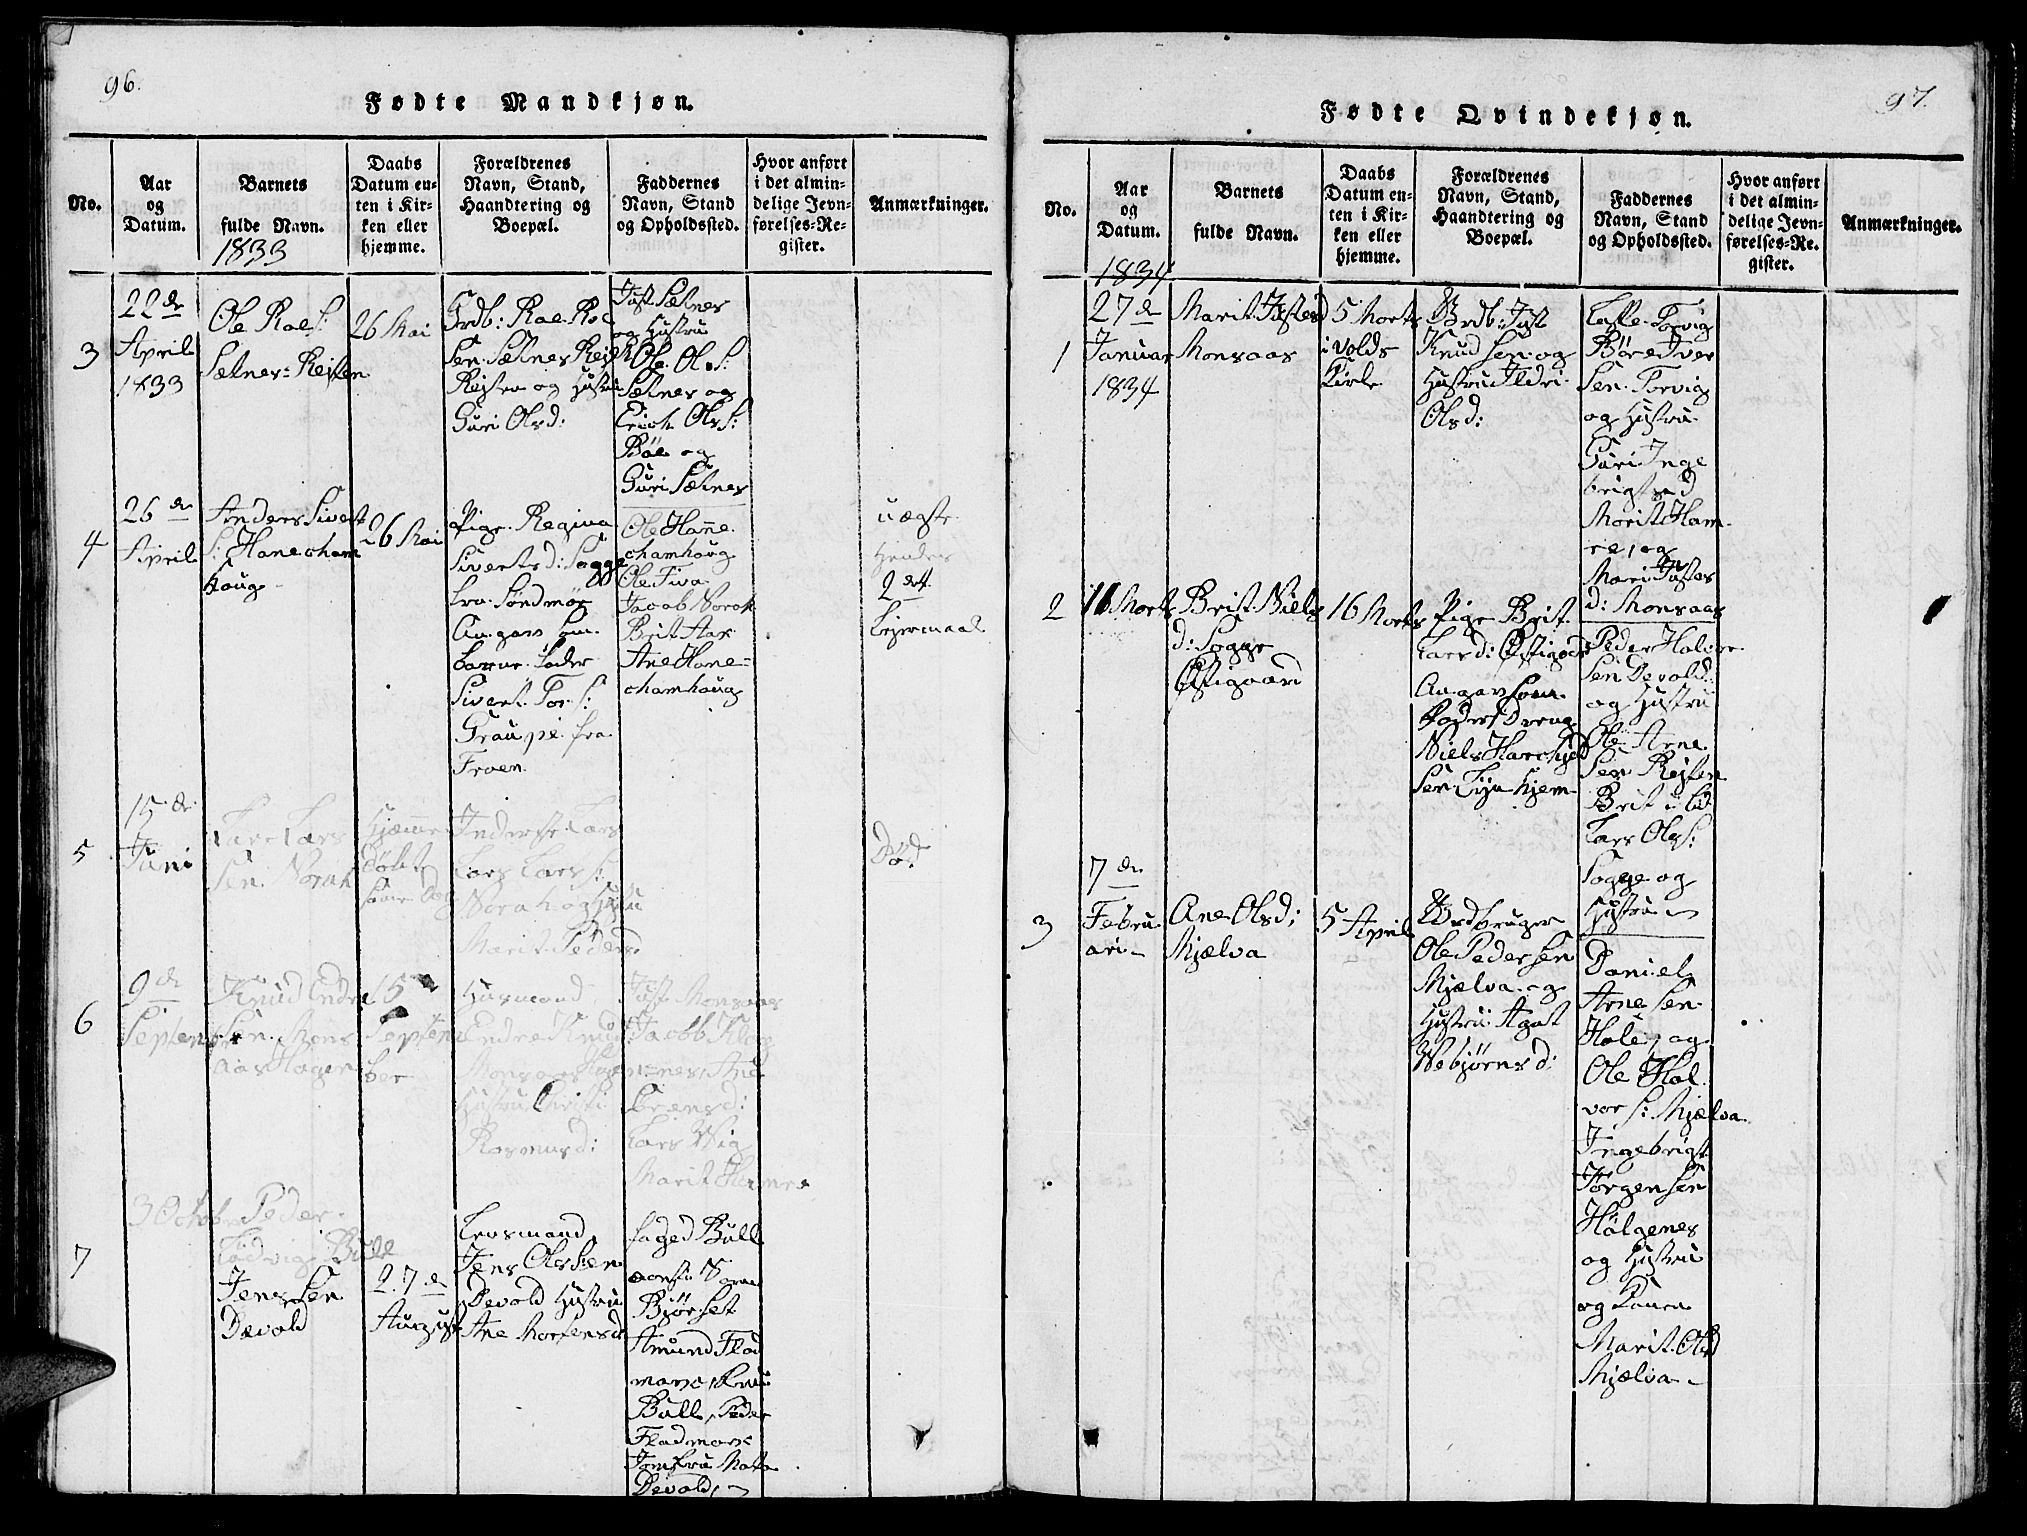 96.
Fødte Mandkjøn.
No.
Aar
og
Datum.
Barnets
fulde Navn.
Daabs
Datum en-
ten i Kir-
ken eller
hjemme.
Forældrenes
Navn, Stand,
Haandtering og
Boepæl.
Faddernes
Navn, Stand
og Opholdssted.
Hvor anført
i det almin-
delige Jevn-
førelses-Re-
gister.
Anmærkninger.
1833
3
22de
April
1833
Ole Roels:
Sætnes-Rejsten
26 Mai
Grdb: Roe Roe
Sen Sætnes
Rejsten og Hustru
Guri Olsd:
Just Sætnes
og Hustru
Ole Ols:
Sætnes og
Erich Ols:
Böe og
Guri Sætnes
4
26de
April
Anders Sivert
S: Hanecham
houg
26 Mai
Pige Regina
Sivertsd: Sogge
fra Søndmør
Angav som
barne fader
Sivert Tors:
Graupe fra
Froen
Ole Hanne
chamhoug
Ole Fiva
Jacob Norah
Brit Aar
Ane Hane-
chamhoug
uægte
Hendes
2det
Lejermaal
5
15de
Juni
Lars Lars
Sen Norah
Hjemme
døbt
samme Dag
Inderste Lars
Lars Lars:
Norah og Hustru
Marit Pedersd
Død
6
9de
Septem
Knud Endre
Sen Mons
aas Hagen
15
Septem
ber
Husmand
Endre Knuds:
Monsaas Hagen
Hustru Christi
Rasmusd:
Just Monsaas
Jacob Flog
nes, Ane
Sørensd:
Lars Wig
Marit Hamre
7
3 Octobr
Peder
Ludvig Bull
Jens Sen
Dævold
27de
August
Lensmand
Jens Olssen
Devold Hustru
Ane Mortensd
Foged Bull
Bjørset
Amund Flad
mark, Fru
Bull, Peder
Fladmark
Jomfru Mat
Devold,
97.
Fødte Qvindekjøn.
No.
Aar
og
Datum.
Barnets
fulde Navn.
Daabs
Datum en-
ten i Kir-
ken eller
hjemme.
Forældrenes
Navn, Stand,
Haandtering og
Boepæl.
Faddernes
Navn, Stand
og Opholdssted.
Hvor anført
i det almin-
delige Jevn-
førelses-Re-
gister.
Anmærkninger.
1834
1
27de
Januar
1834
Marit Justesd
Monsaas
5 Morts
i Volds
Kirke
Grdb: Just
Knud Sen og
Hustru Ildri
Olsd:
Lasse Torvig
Børe Iver
Sen Torvig
og Hustru
Guri Inge
brigtsd
Marit Ham-
re, og
Mari Justes
d: Monsaas
2
11 Morts
Brit Niels
d: Sogge
Østigaard
16 Morts
Pige Brit
Larsd: Østigard
Angav som
Fader Dreng
Niels Harchjel
Sen Lyn hjem
Peder Halvor
Sen Devold
og Hustru
Ole Arne
Sen Rejsten
Brit i Lid
Lars Ols:
Sogge og
Hustru
3
7de
Febru
ari
Ane Olsd;
Mjelva
5 April
Grdbruger
Ole Peder Sen
Mjelva og
Hustru Agat
Webjørnsd:
Daniel
Arne Sen
Hole, og
Ole Hal
vor S: Mjælva
Ingebrigt
Jørgen Sen
Holgenes
og Hustru
og Karen
Marit Olsd
Mjælva